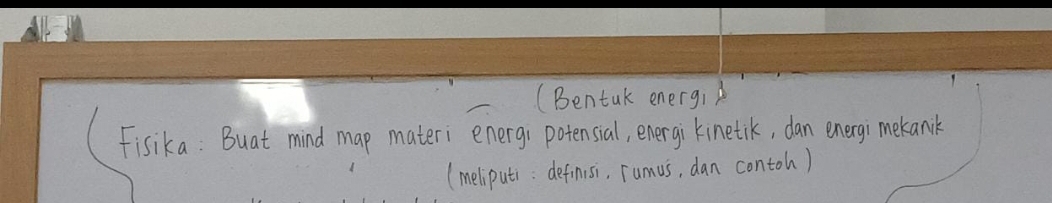 (Bentuk energi)
Fisika : Buat mind map materi energi potensial, energi kinetik, dan energi mekanik
(meliputi : definisi, rumus, dan contoh)